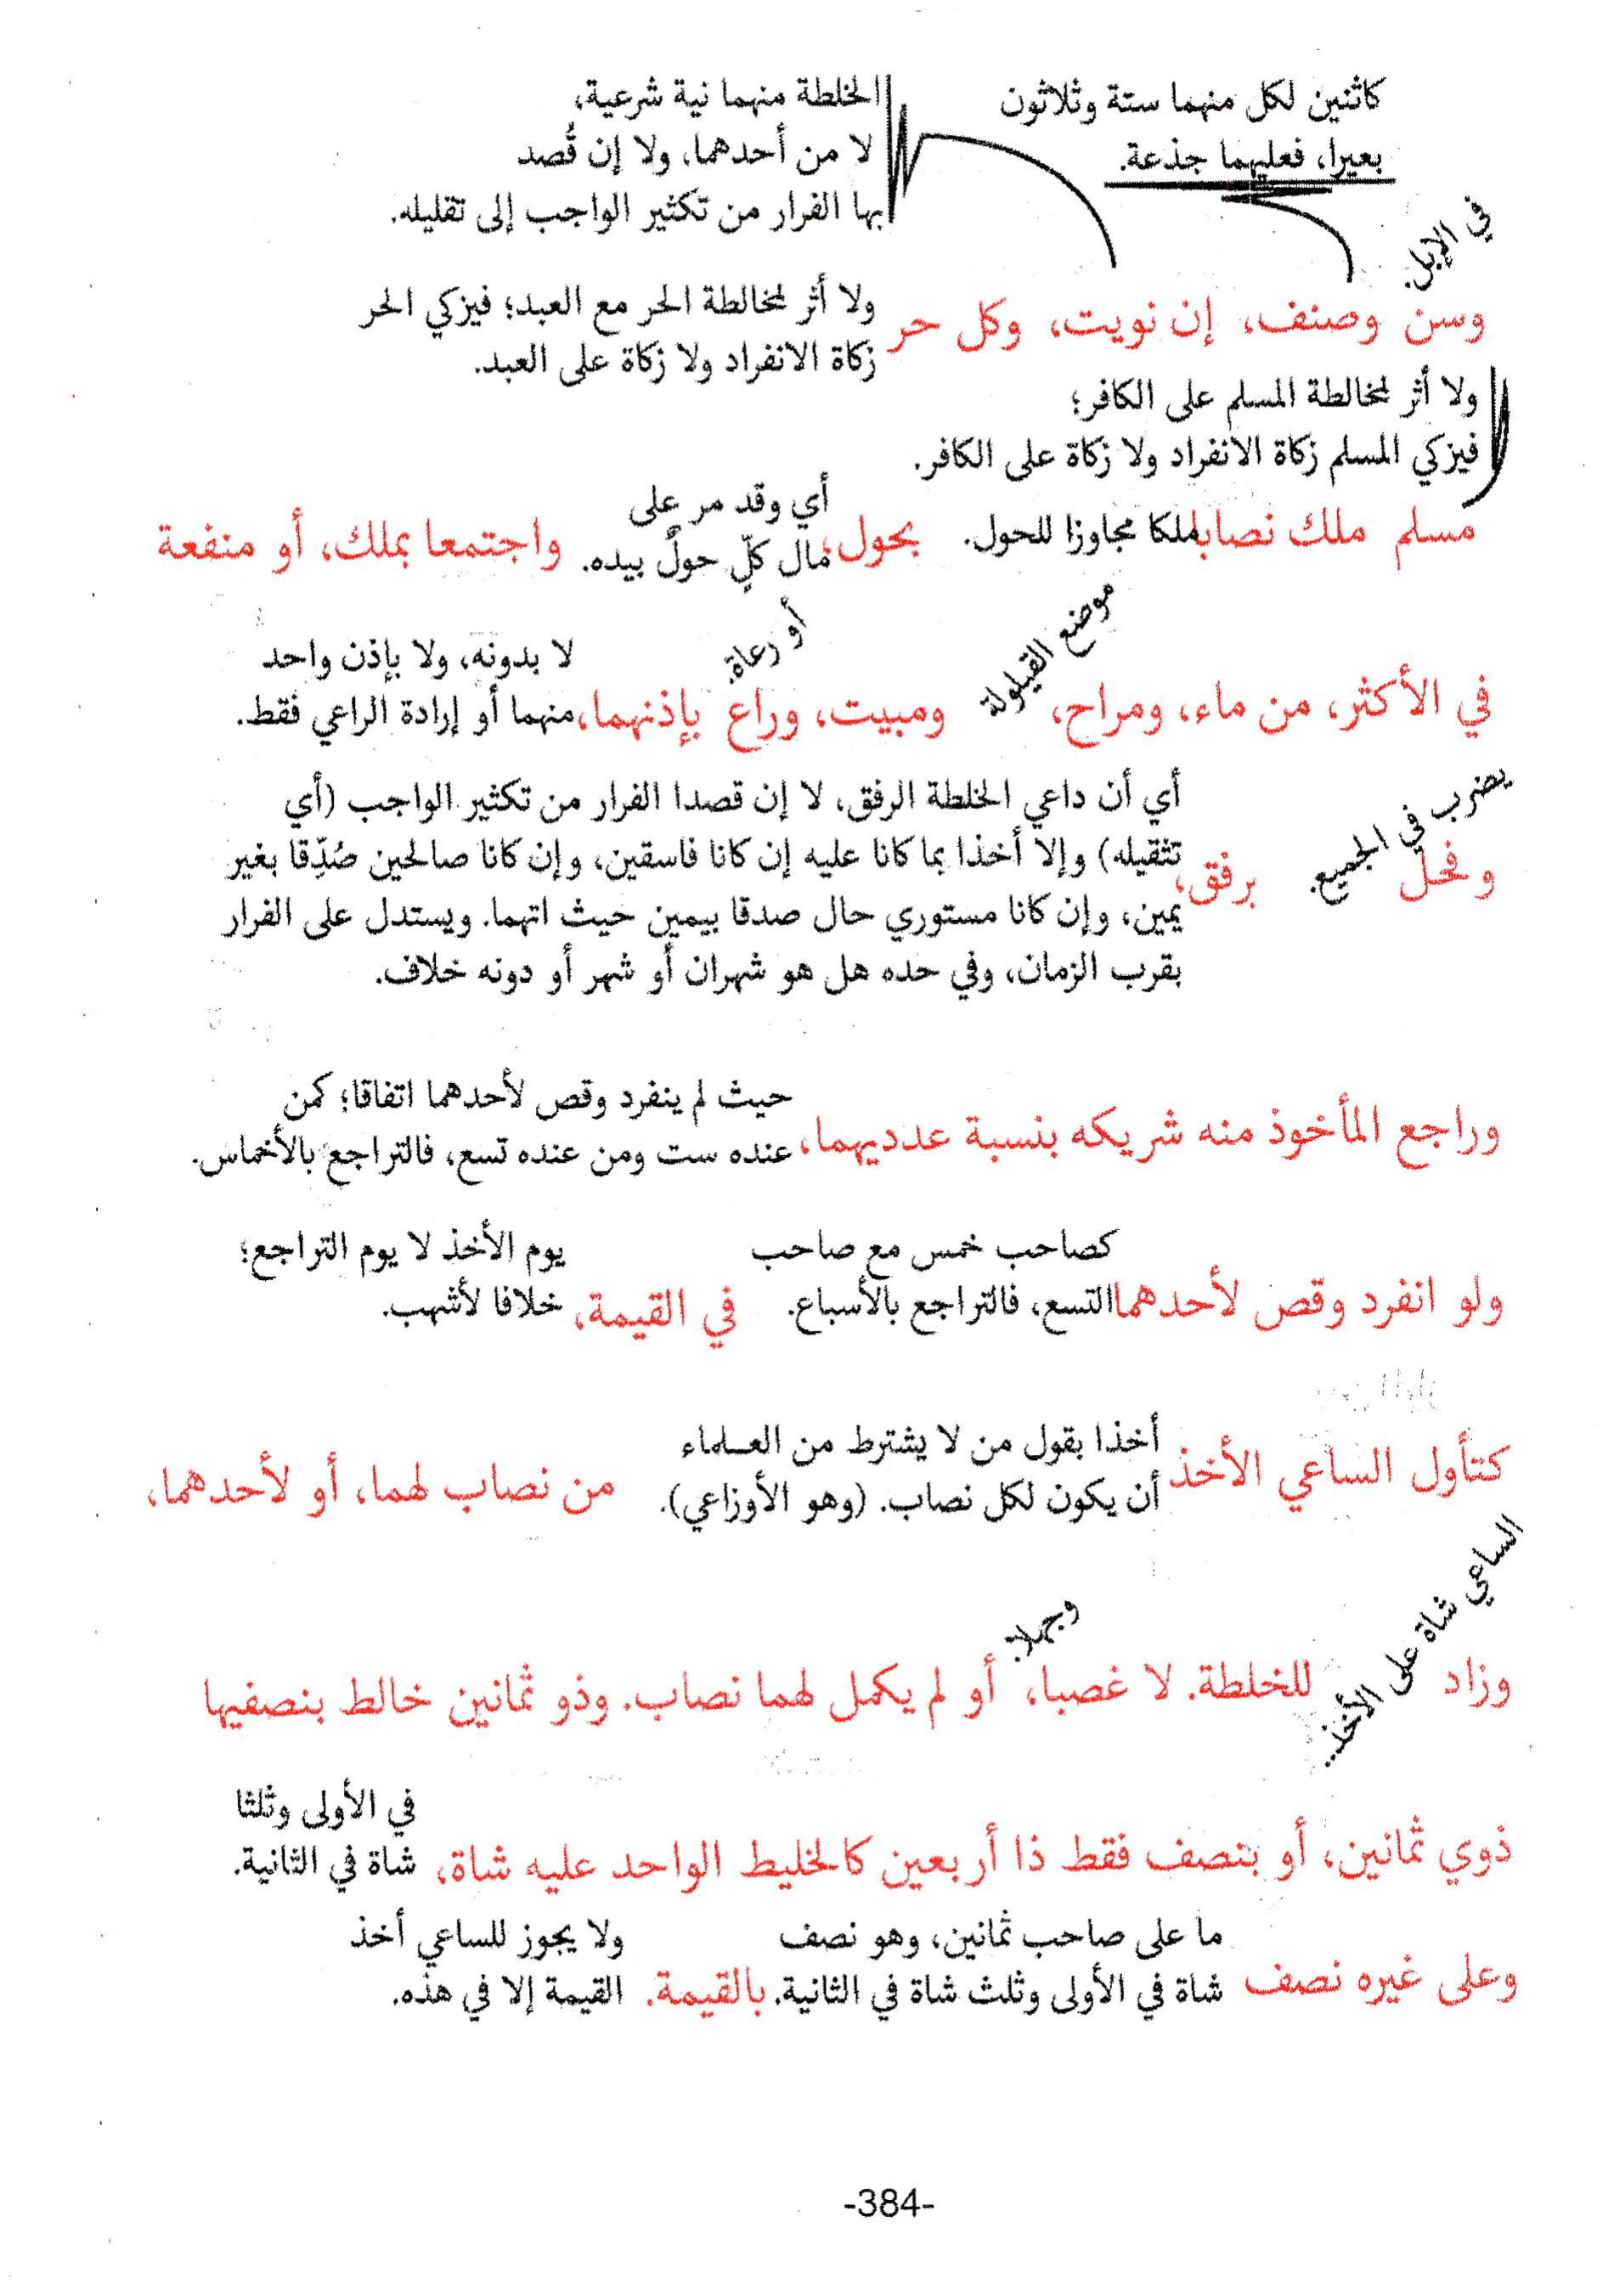 كاثنين لكل منهما ستة وثلاثون
بعيرا، فعليهما جذعة.
الخلطة منهما نية شرعية،
لا من أحدهما، ولا إن قُصد
بها الفرار من تكثير الواجب إلى تقليله.
وسن
في الإبل.
وصنف، إن نويت، وكل حر
ولا أثر لمخالطة الحر مع العبد؛ فيزكي الحر
زكاة الانفراد ولا زكاة على العبد.
ولا أثر لمخالطة المسلم على الكافر؛
فيزكي المسلم زكاة الانفراد ولا زكاة على الكافر.
مسلم ملك نصابا
ملكا مجاوزا للحول.
بحول،
أي وقد مر على
مال كلٍّ حولٌ بيده.
واجتمعا بملك، أو منفعة
في الأكثر، من ماء، ومراح،
موضع القيلولة
ومبيت، وراع
أو رعاة.
بإذنهما،
لا بدونه، ولا بإذن واحد
منهما أو إرادة الراعي فقط.
وفحل
يضرب في الجميع.
برفق،
أي أن داعي الخلطة الرفق، لا إن قصدا الفرار من تكثير الواجب (أي
تثقيله) وإلا أخذا بما كانا عليه إن كانا فاسقين، وإن كانا صالحين صُدِّقا بغير
يمين، وإن كانا مستوري حال صدقا بيمين حيث اتهما. ويستدل على الفرار
بقرب الزمان، وفي حده هل هو شهران أو شهر أو دونه خلاف.
وراجع المأخوذ منه شريكه بنسبة عدديهما،
حيث لم ينفرد وقص لأحدهما اتفاقا؛ كمن
عنده ست ومن عنده تسع، فالتراجع بالأخماس.
ولو انفرد وقص لأحدهما
كصاحب خمس مع صاحب
التسع، فالتراجع بالأسباع.
في القيمة،
يوم الأخذ لا يوم التراجع؛
خلافا لأشهب.
كتأول الساعي الأخذ
أخذا بقول من لا يشترط من العلماء
أن يكون لكل نصاب. (وهو الأوزاعي).
من نصاب لهما، أو لأحدهما،
وزاد
الساعي شاة على الأخذ..
للخلطة. لا غصبا،
وجهلا.
أو لم يكمل لهما نصاب. وذو ثمانين خالط بنصفيها
ذوي ثمانين، أو بنصف فقط ذا أربعين كالخليط الواحد عليه شاة،
في الأولى وثلثا
شاة في الثانية.
وعلى غيره نصف
ما على صاحب ثمانين، وهو نصف
شاة في الأولى وثلث شاة في الثانية.
بالقيمة.
ولا يجوز للساعي أخذ
القيمة إلا في هذه.
-384-